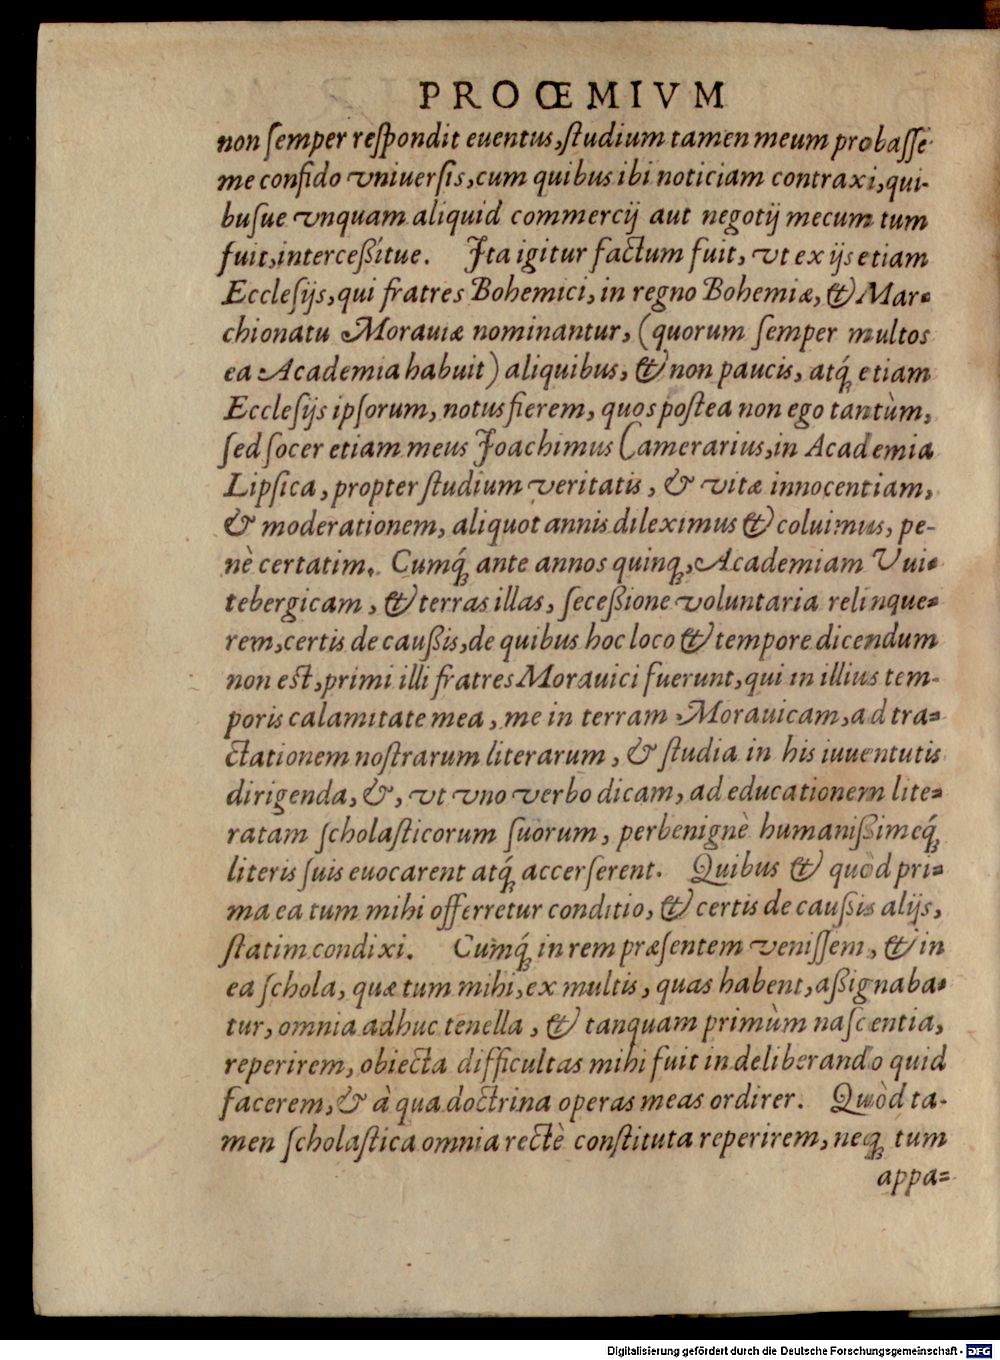 PROŒMIVM
non ſemper reſpondit euentus, ſtudium tamen meum probaſſe
me confido vniuerſis, cum quibus ibi noticiam contraxi, qui-
buſue vnquam aliquid commercij aut negotij mecum tum
fuit, interceßítue. Ita igitur factum fuit, vt ex ijs etiam
Eccleſijs, qui fratres Bohemici, in regno Bohemiæ, & Mar-
chionatu Morauiæ nominantur, (quorum ſemper multos
ea Academia habuit) aliquibus, & non paucis, atq́ꝫ etiam
Eccleſijs ipſorum, notus fierem, quos poſtea non ego tantùm,
ſed ſocer etiam meus Joachimus Camerarius, in Academia
Lipſica, propter ſtudium veritatis, & vitæ innocentiam,
& moderationem, aliquot annis dileximus & coluimus, pe-
nè certatim. Cumq́ꝫ ante annos quinqꝫ, Academiam Vui-
tebergicam, & terras illas, ſeceßione voluntaria relinque-
rem, certis de caußis, de quibus hoc loco & tempore dicendum
non eſt, primi illi fratres Morauici fuerunt, qui in illius tem-
poris calamitate mea, me in terram Morauicam, ad tra-
ctationem noſtrarum literarum, & ſtudia in his iuuentutis
dirigenda, &, vt vno verbo dicam, ad educationem lite-
ratam ſcholaſticorum ſuorum, perbenignè humanißimeq́ꝫ
literis ſuis euocarent atq́ꝫ accerſerent. Quibus & quòd pri-
ma ea tum mihi offerretur conditio, & certis de caußis alijs,
ſtatim condixi. Cumq́ꝫ in rem præſentem veniſſem, & in
ea ſchola, quæ tum mihi, ex multis, quas habent, aßignaba-
tur, omnia adhuc tenella, & tanquam primùm naſcentia,
reperirem, obiecta difficultas mihi fuit in deliberando quid
facerem, & à qua doctrina operas meas ordirer. Quòd ta-
men ſcholaſtica omnia rectè conſtituta reperirem, neqꝫ tum
appa-
Digitalisierung gefördert durch die Deutsche Forschungsgemeinschaft - DFG